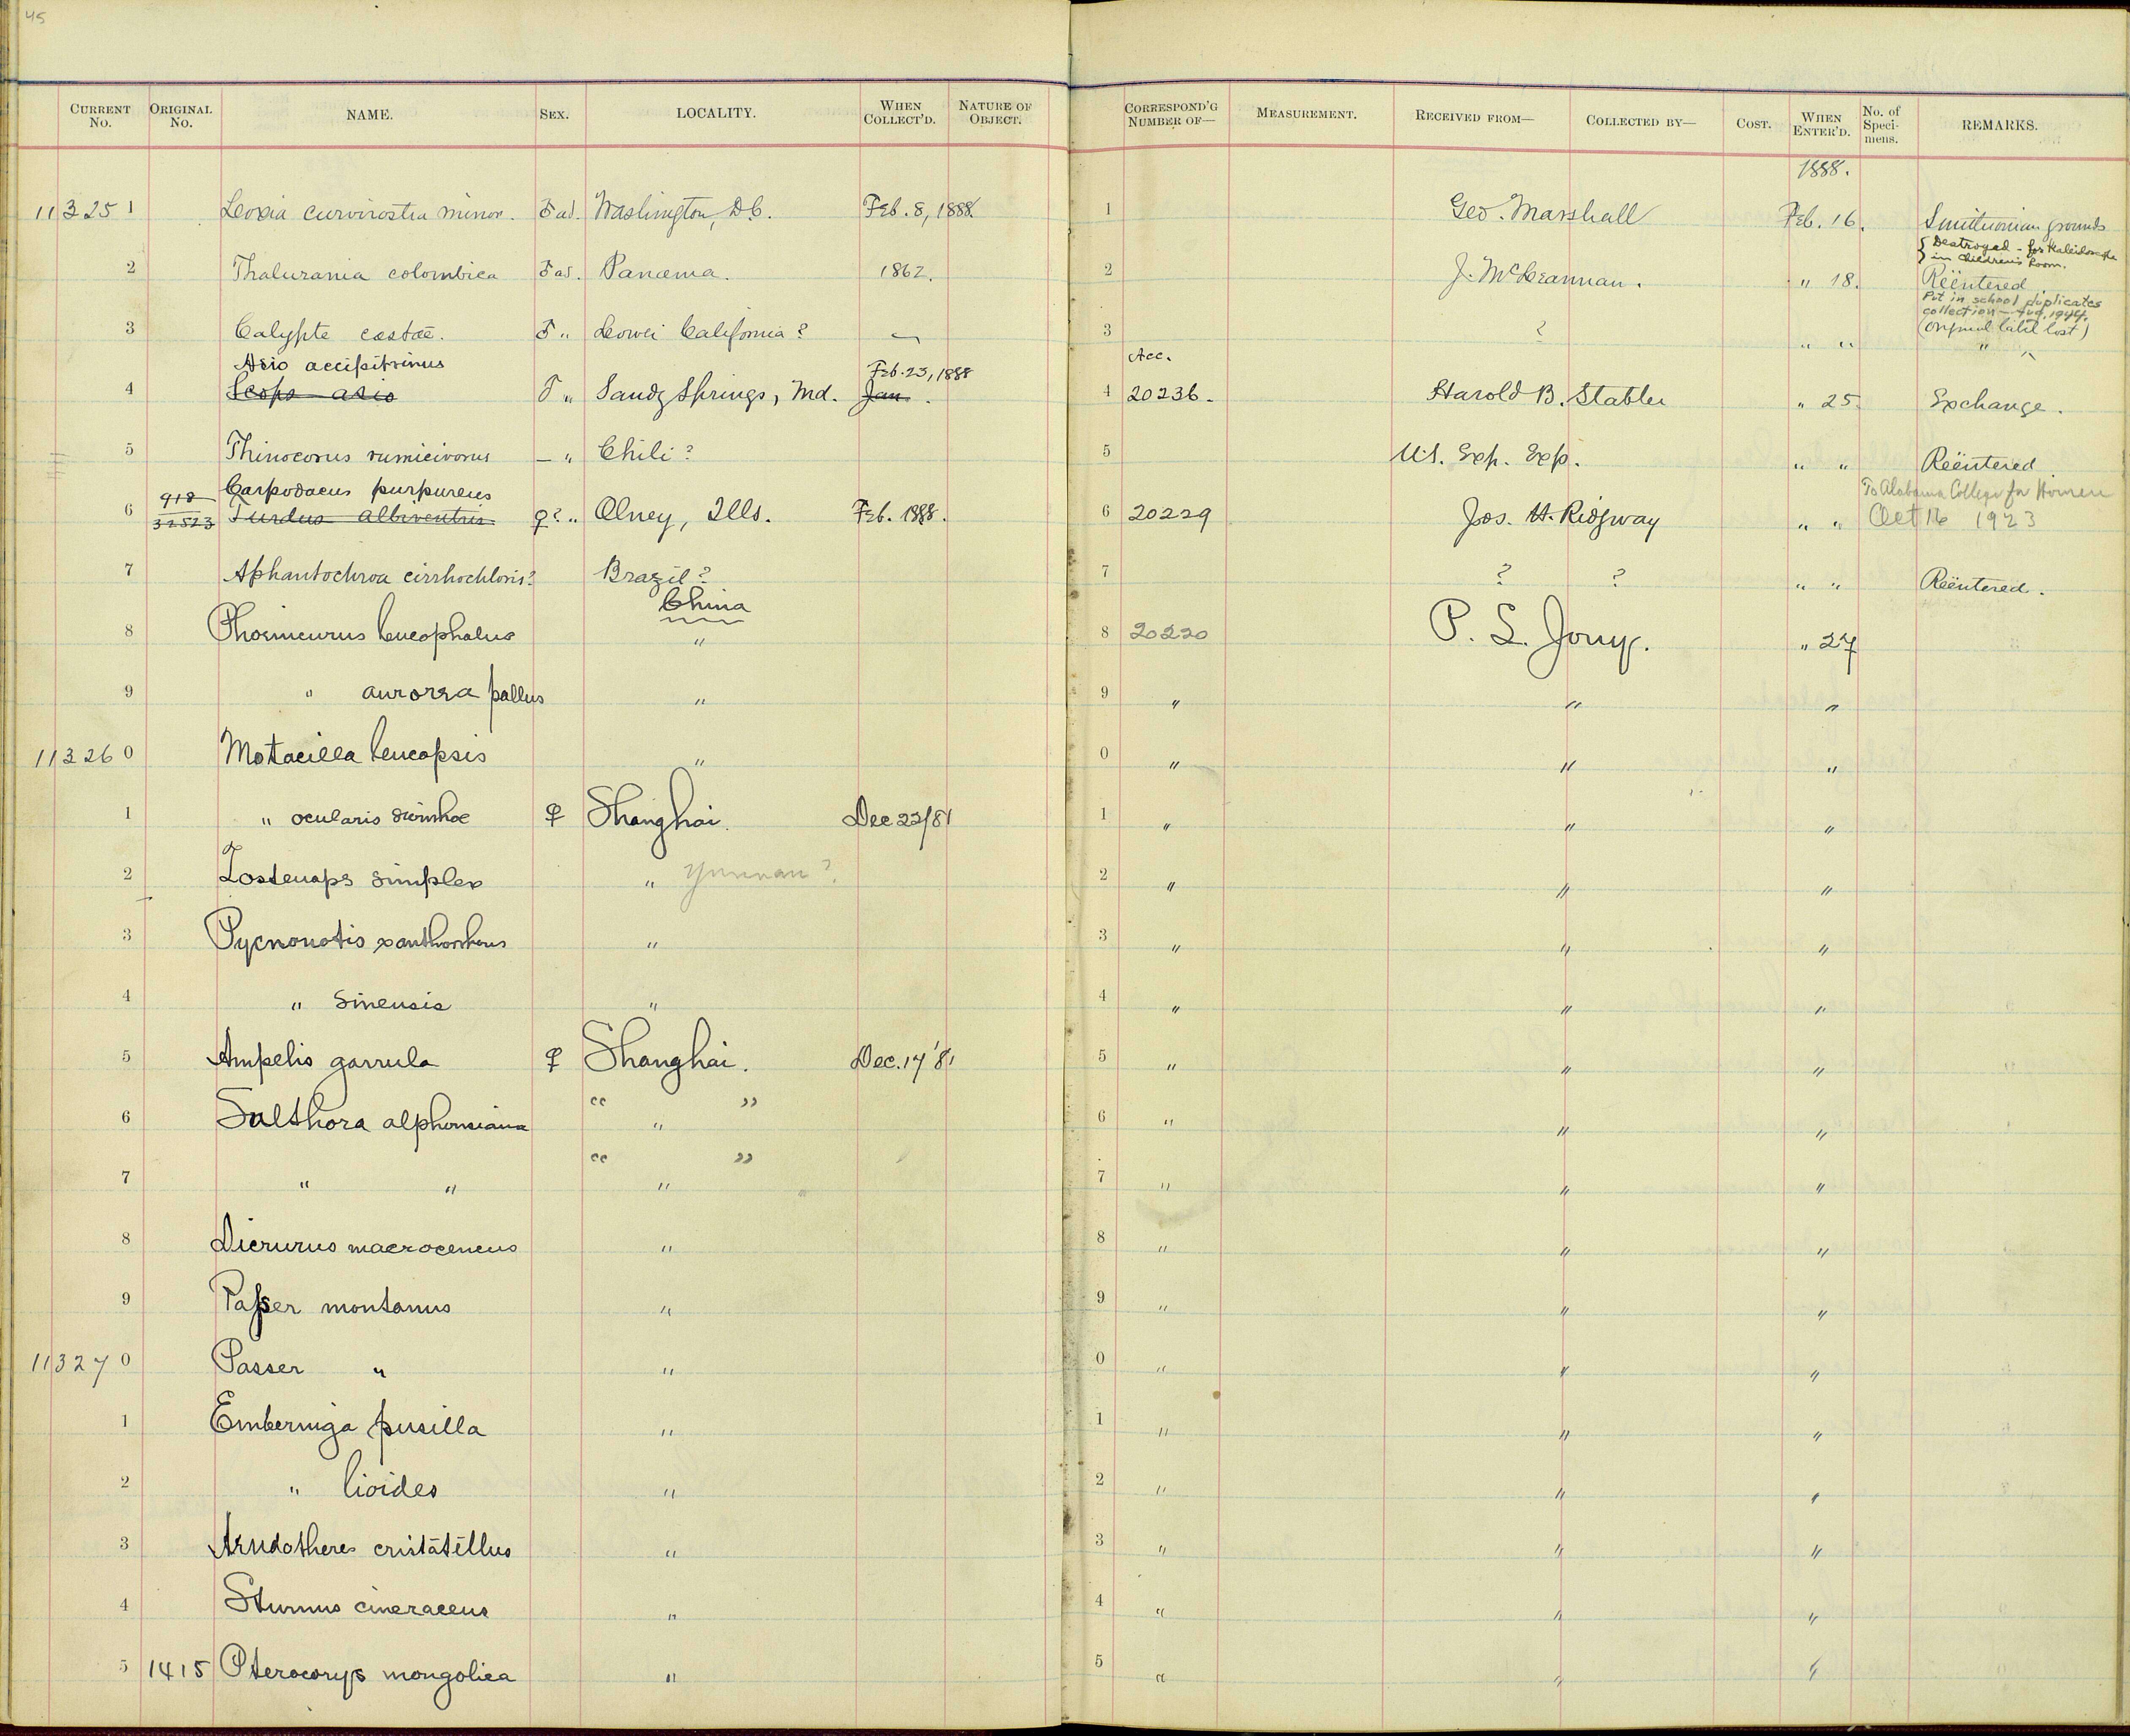 45
CURRENT No. ORIGINAL No. NAME. SEX. LOCALITY. WHEN COLLECT'D. NATURE OF OBJECT. CORRESPOND'G NUMBER OF— MEASUREMENT. RECEIVED FROM— COLLECTED BY— COST. WHEN ENTER'D. No. of Speci-mens. REMARKS.
1888.
11325 1 Loxia curvirostra minor. ♂ ad. Washington, D.C. Feb. 8, 1888. 1 Geo. Marshall Feb. 16. Smithsonian grounds
{ Destroyed - for Kaleidoscope
in Children's Room.
2 Thalurania colombica ♂ ad. Panama. 1862. 2 J. McLeannan. " 18. Reëntered.
Put in school duplicates
collection — Aug. 1944.
3 Calypte costae. ♂ " Lower California? — 3 ? " " (Original label lost)
" "
Asio accipitrinus Feb. 23, 1888 Acc.
4 Scops asio ♂ " Sandy Springs, Md. Jan. 4 20236. Harold B. Stabler " 25. Exchange.
5 Thinocorus rumicivorus — " Chili? 5 U.S. Exp. Exp. " " Reëntered.
918 Carpodacus purpureus To Alabama College for Women
6 32523 Turdus albiventris ♀? " Olney, Ills. Feb. 1888. 6 20229 Jos. H. Ridgway " " Oct 16 1923
7 Aphantochroa cirrhochloris? Brazil? 7 ? ? " " Reëntered.
China
8 Phoenicurus leucophalus " 8 20220 P. L. Jouy. " 27
9 " aurorea pallus " 9 " " "
11326 0 Motacilla leucopsis " 0 " " "
1 " ocularis swinhoe ♀ Shanghai. Dec 22/81 1 " " "
2 Zosterops simplex " Yunnan? 2 " " "
3 Pycnonotis xanthorrhous " 3 " " "
4 " sinensis " 4 " " "
5 Ampelis garrula ♀ Shanghai. Dec. 17 '81 5 " " "
" "
6 Suthora alphonsiana " 6 " " "
" "
7 " " " 7 " " "
8 Dicrurus macrocencus " 8 " " "
9 Passer montanus " 9 " " "
11327 0 Passer " " 0 " " "
1 Emberniga pusilla " 1 " " "
2 " lioides " 2 " " "
3 Arudotheres cristatellus " 3 " " "
4 Sturnus cineraceus " 4 " " "
5 1415 Pterocorys mongolica " 5 " " "